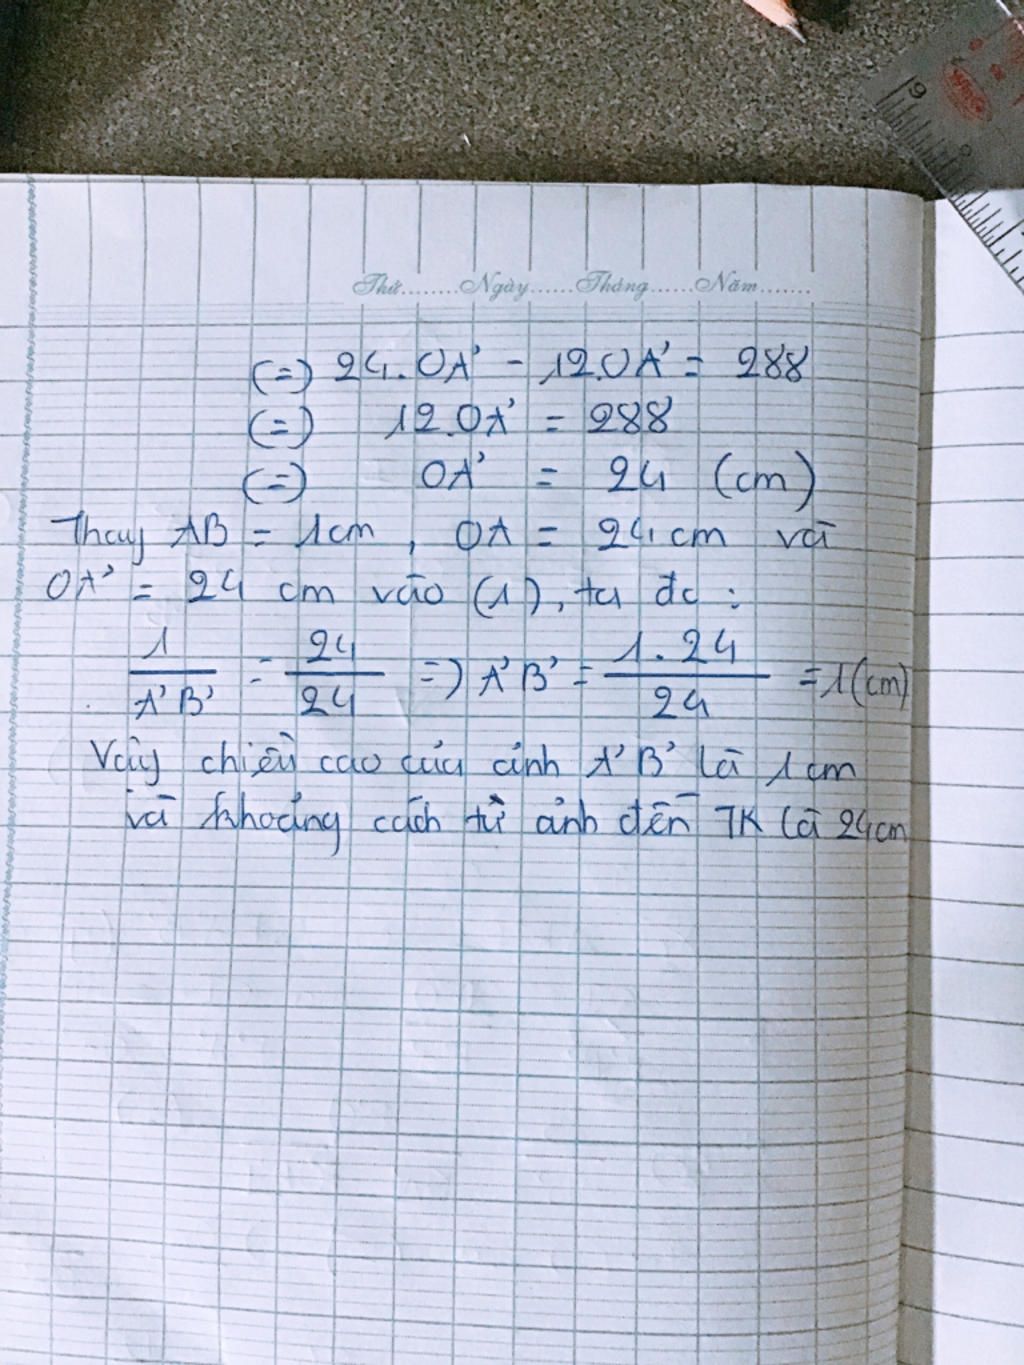 Thứ........Ngày......Tháng......Năm.......
(=) 24.OA' - 12.OA' = 288
(=) 12.OA' = 288
(=) OA' = 24 (cm)
Thay AB = 1cm, OA = 24cm và
OA' = 24 cm vào (1), ta đc :
1/A'B' = 24/24 => A'B' = 1.24/24 = 1(cm)
Vậy chiều cao của ảnh A'B' là 1cm
và khoảng cách từ ảnh đến TK là 24cm
9